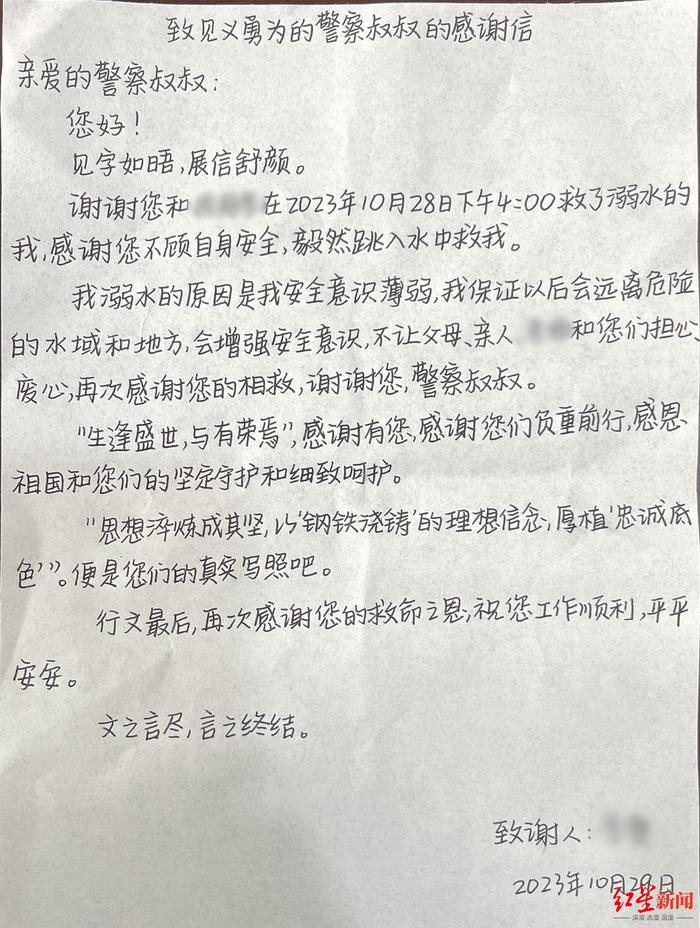 致见义勇为的警察叔叔的感谢信
亲爱的警察叔叔:
您好!
见字如晤,展信舒颜。
谢谢您和 在2023年10月28日下午4:00救了溺水的
我,感谢您不顾自身安全,毅然跳入水中救我。
我溺水的原因是我安全意识薄弱,我保证以后会远离危险
的水域和地方,会增强安全意识,不让父母、亲人、 和您们担心、
废心,再次感谢您的相救,谢谢您,警察叔叔。
“生逢盛世,与有荣焉”,感谢有您,感谢您们负重前行,感恩
祖国和您们的坚定守护和细致呵护。
“思想淬炼成其坚,以‘钢铁浇铸’的理想信念,厚植‘忠诚底
色’”。便是您们的真实写照吧。
行文最后,再次感谢您的救命之恩,祝您工作顺利,平平
安安。
文之言尽,言之终结。
致谢人:
2023年10月29日
红星新闻
深度 态度 温度